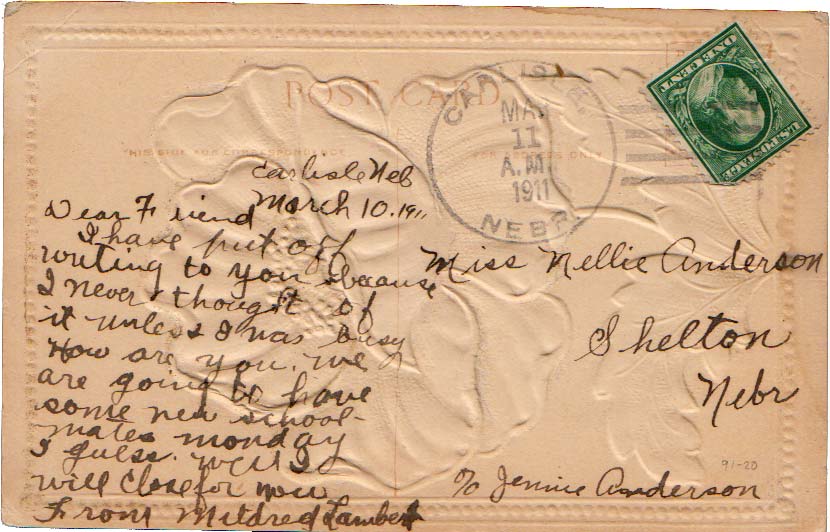 POST CARD
THIS SIDE FOR CORRESPONDENCE
FOR ADDRESS ONLY
CARLISLE,
MAR
11
A.M.
1911
NEBR.
U.S. POSTAGE
ONE CENT
Carlisle Neb
March 10. 1911
Dear Friend
I have put off
writing to you because
I never thought of
it unless I was busy
How are you. we
are going to have
some new school-
mates monday
I guess. Well I
will close for now
From Mildred Lambert
Miss Nellie Anderson
Shelton
Nebr
c/o Jennie Anderson
91-20